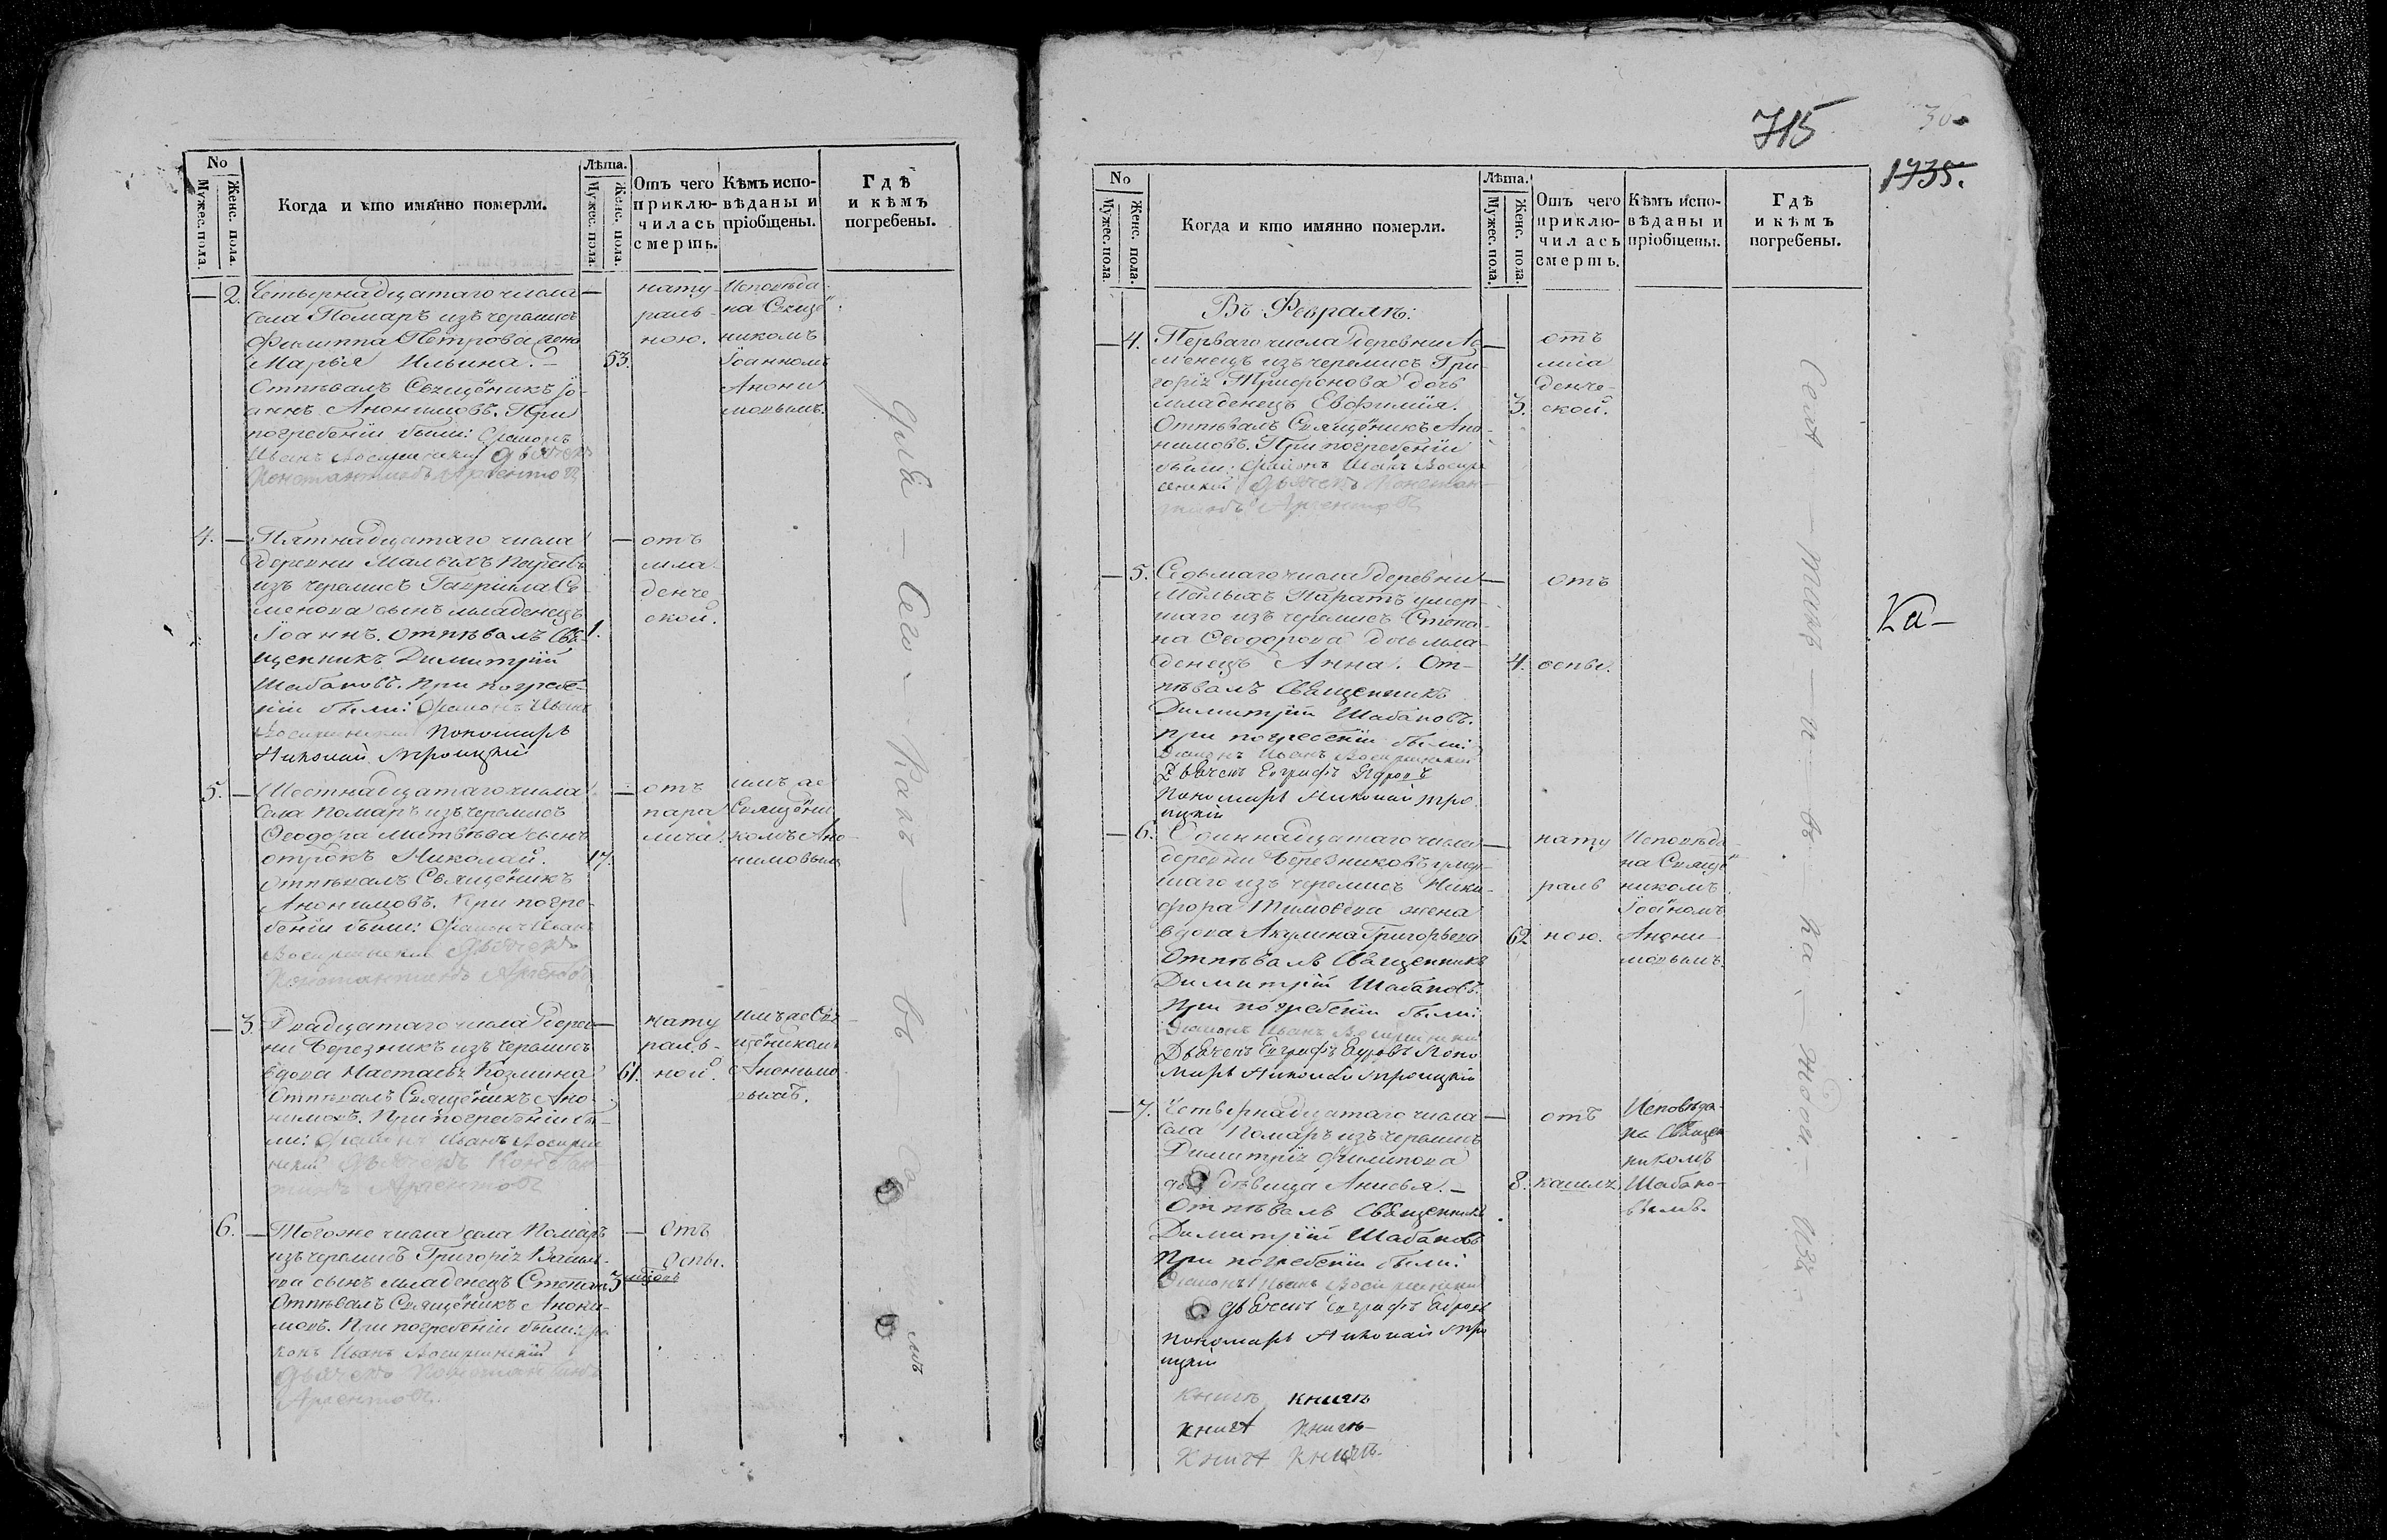 No
Мужес. пола.
Женс. пола.
Когда и кто имянно померли.
Лѣта.
Мужес. пола.
Женс. пола.
Отъ чего
приклю-
чилась
смерть.
Кѣмъ испо-
вѣданы и
пріобщены.
Гдѣ
и кѣмъ
погребены.
— 2. Четырнадцатаго числа —
села Помаръ изъ черемисъ
Филиппа Петрова жена
Марья Ильина. — 53.
Отпѣвалъ Свящённикъ Іо-
аннъ Анонимовъ. При
погребеніи были: Диаконъ
Иванъ дьячекъ
Константинъ Аргентовъ
нату-
раль-
ною.
Исповѣда-
на Свяще-
никомъ
Іоанномъ
Анони
мовымъ.
4. — Пятнадцатаго числа —
деревни Малыхъ Паратъ
изъ черемисъ Гавріила Се-
менова сынъ младенецъ
Іоаннъ. Отпѣвалъ Свя- 1.
щенникъ Димитрій
Шабановъ. При погребе-
ніи были: Диаконъ Иванъ
Пономарь
Николай Троицкій
отъ
мла
денче
ской.
5. — Шестнадцатаго числа —
села Помаръ изъ черемисъ
Ѳеодора Матвѣева сынъ
отрокъ Николай. 17.
Отпѣвалъ Священикъ
Анонимовъ. При погре-
беніи были: Диаконъ Иванъ
Дьячекъ
Константинъ Аргентовъ
отъ
пара
лича.
имъ же
Священи
комъ Ано-
нимовымъ
— 3. Двадцатаго числа дерев- —
ни Березникъ изъ черемисъ
вдова Настасья Козмина 61.
Отпѣвалъ Священикъ Ано-
нимовъ. При погребеніи бы-
ли: Диаконъ Иванъ
Дьячекъ Констан-
тинъ Аргентовъ
нату
раль-
ной.
имъ же Свя-
щеникомъ
Анонимо-
вымъ.
6. — Того же числа села Помаръ —
изъ черемисъ Григорія Василь-
ева сынъ младенецъ Степанъ 3
Отпѣвалъ Священикъ Анони-
мовъ. При погребеніи были: Диа
конъ Иванъ
дьячекъ Константинъ
Аргентовъ.
отъ
оспы.
— Какъ — въ
715
1735.
No
Мужес. пола.
Женс. пола.
Когда и кто имянно померли.
Лѣта.
Мужес. пола.
Женс. пола.
Отъ чего
приклю-
чилась
смерть.
Кѣмъ испо-
вѣданы и
пріобщены.
Гдѣ
и кѣмъ
погребены.
Въ Февралѣ:
— 4. Перваго числа деревни —
изъ черемисъ Гри-
горія Трифонова дочь
младенецъ Евфимія. 3.
Отпѣвалъ Священикъ Ано-
нимовъ. При погребеніи
были: Диаконъ Иванъ
дьячекъ Констан-
тинъ Аргентовъ
отъ
мла
денче-
ской.
— 5. Седьмаго числа деревни —
Малыхъ Паратъ умер-
шаго изъ черемисъ Степа-
на Ѳеодорова дочь мла-
денецъ Анна. От- 4.
пѣвалъ Священникъ
Димитрій Шабановъ.
При погребеніи были:
Диаконъ Иванъ
Дьячекъ Евграфъ
Пономарь Николай Тро
ицкій
отъ
оспы.
Ка-
— 6. Одиннадцатаго числа —
деревни Березниковъ умер-
шаго изъ черемисъ Ники-
фора Тимоѳева жена
вдова Акулина Григорьева 62
Отпѣвалъ Священникъ
Димитрій Шабановъ.
При погребеніи были:
Диаконъ Иванъ
Дьячекъ Евграфъ Поно
марь Николай Троицкій
нату
раль
ною.
Исповѣда-
на Свяще-
никомъ
Іоаномъ
Анони-
мовымъ.
— 7. Четырнадцатаго числа —
села Помаръ изъ черемисъ
Димитрія Филипова
дѣвица Анисья. — 8.
Отпѣвалъ Священникъ
Димитрій Шабановъ
При погребеніи были:
Диаконъ Иванъ
дьячекъ Евграфъ
пономарь Николай Тро
ицкій
отъ
кашля.
Исповѣда-
на Священ
никомъ
Шабано-
вымъ.
книгъ книгъ
книга книгъ
Книга книгъ.